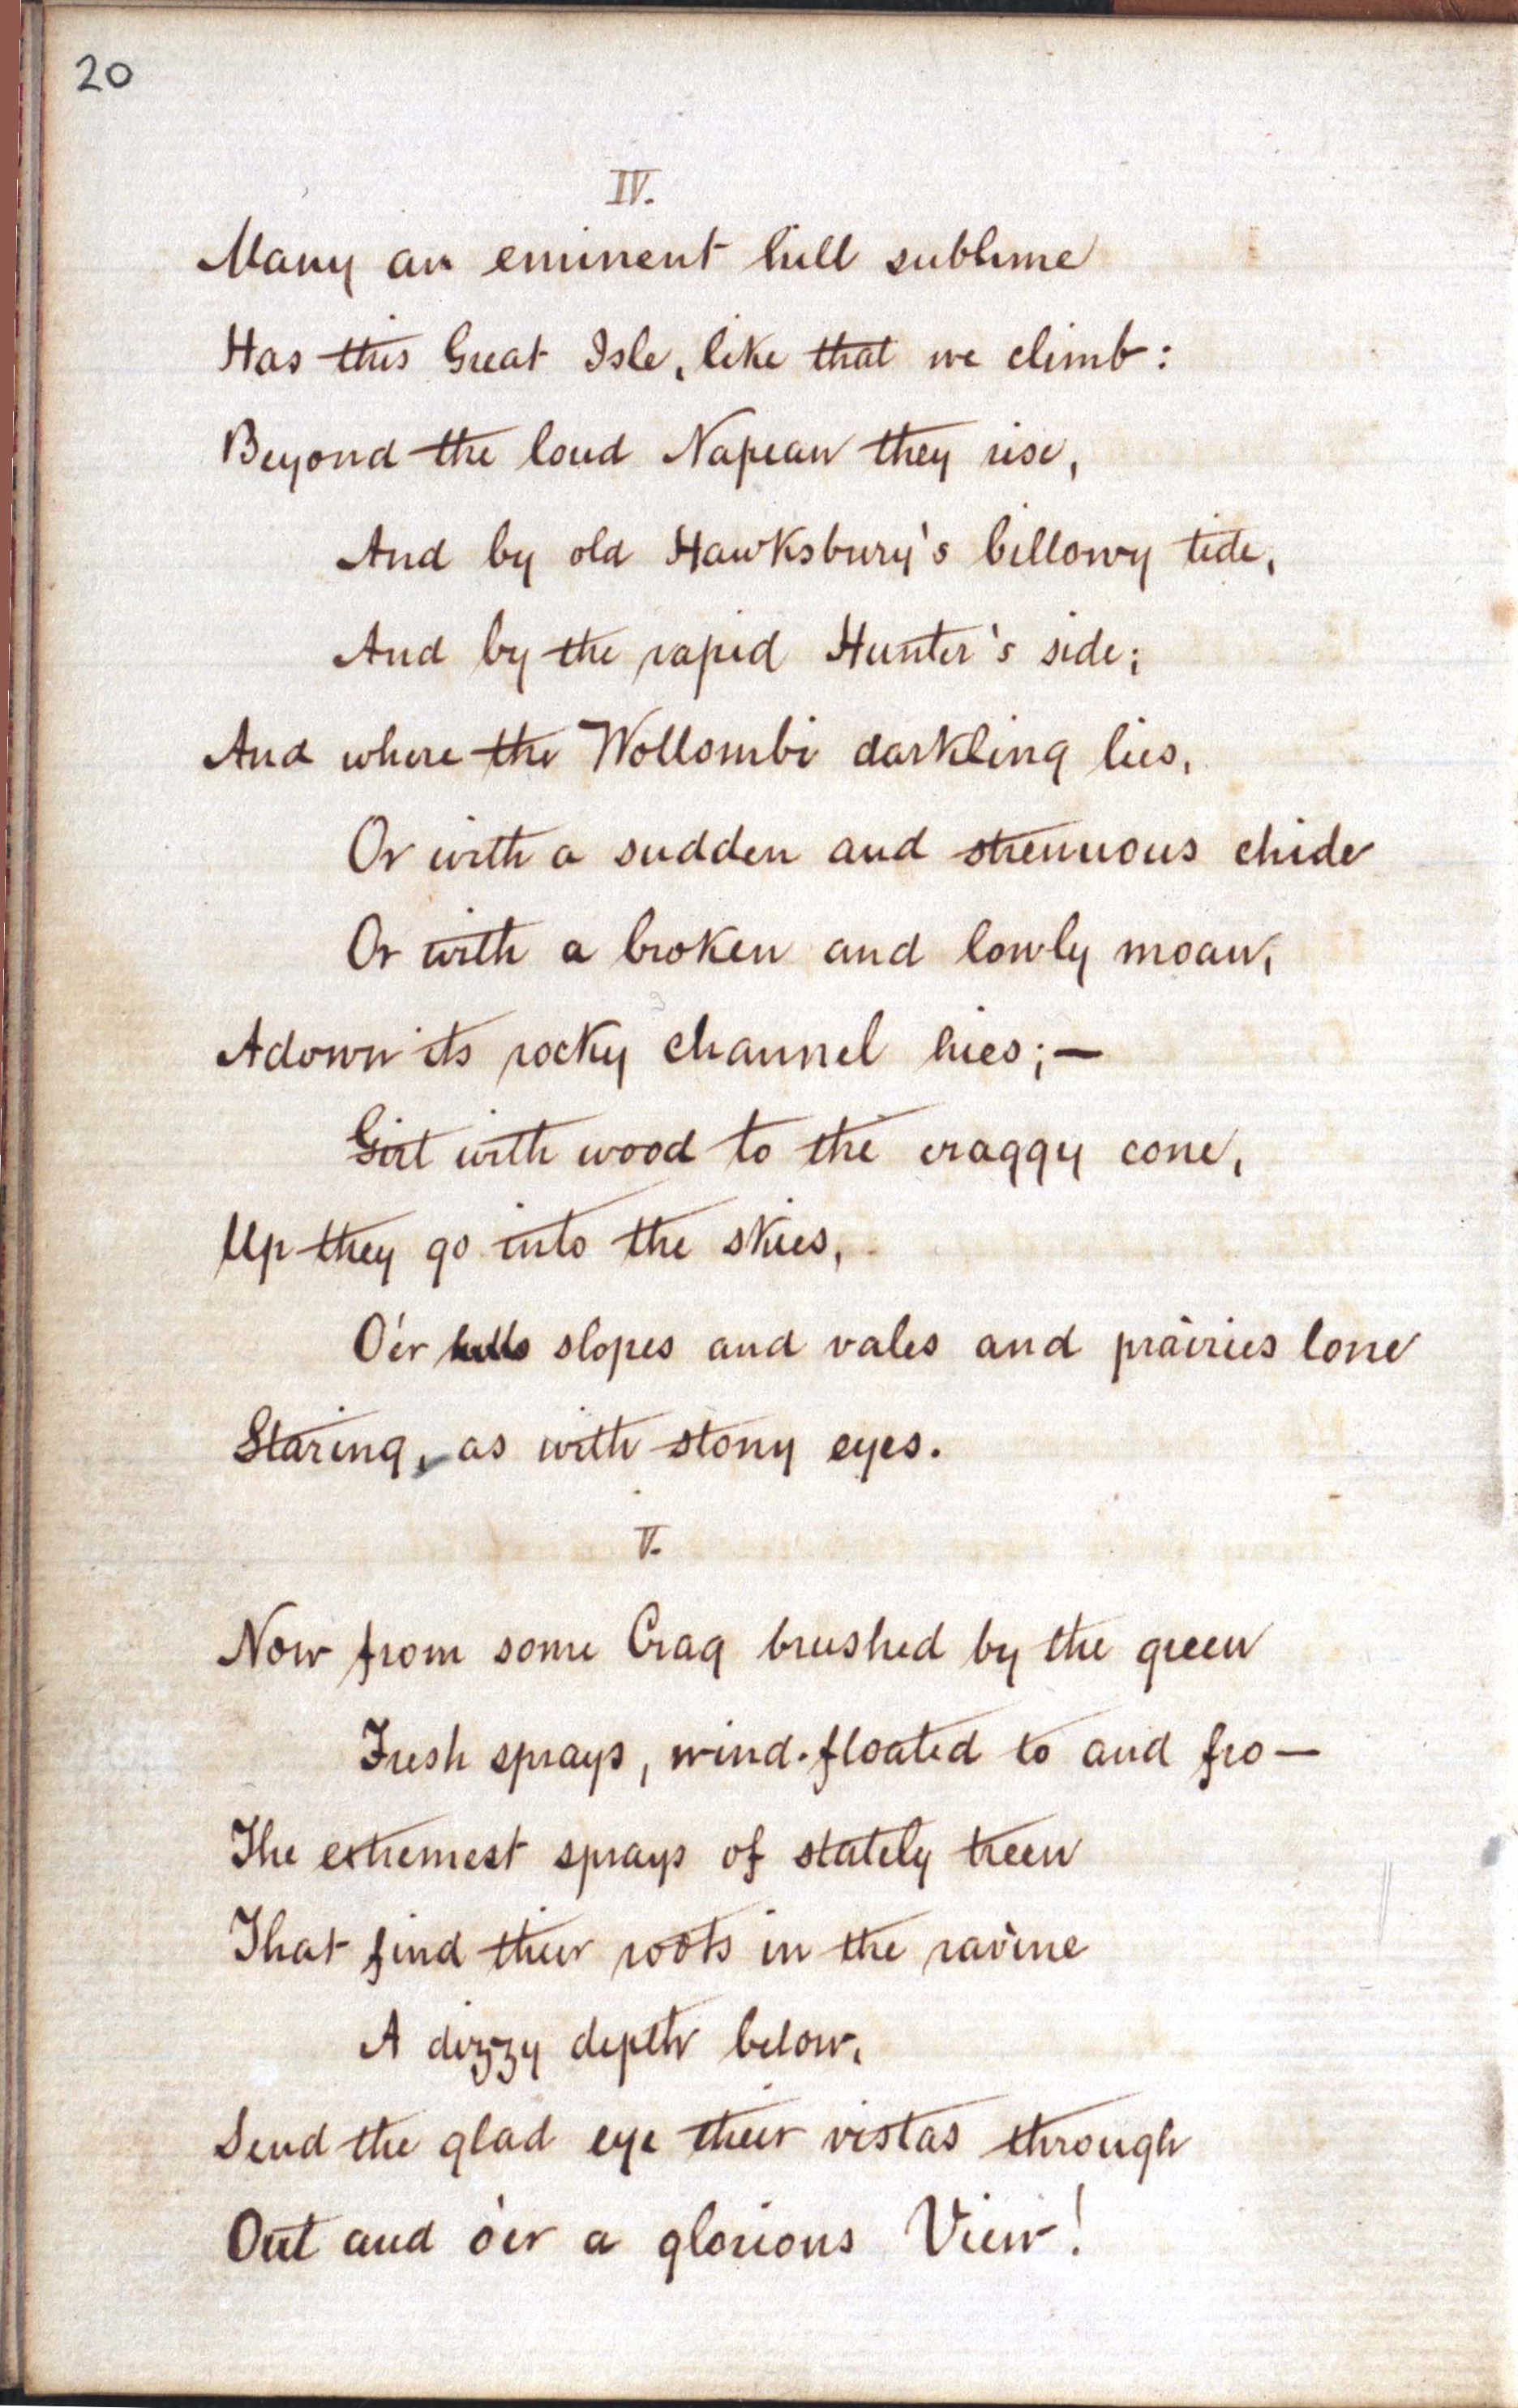 20
IV.
Many an eminent hill sublime
Has this Great Isle, like that we climb:
Beyond the loud Napean they rise,
And by old Hawksbury's billowy tide,
And by the rapid Hunter's side;
And where the Wollombi darkling lies,
Or with a sudden and strenuous chide
Or with a broken and lowly moan,
Adown its rocky channel hies;—
Girt with wood to the craggy cone,
Up they go into the skies,
O'er hills slopes and vales and prairies lone
Staring, as with stony eyes.
V.
Now from some Crag brushed by the green
Fresh sprays, wind-floated to and fro—
The extremest sprays of stately treen
That find their roots in the ravine
A dizzy depth below,
Send the glad eye their vistas through
Out and o'er a glorious View!